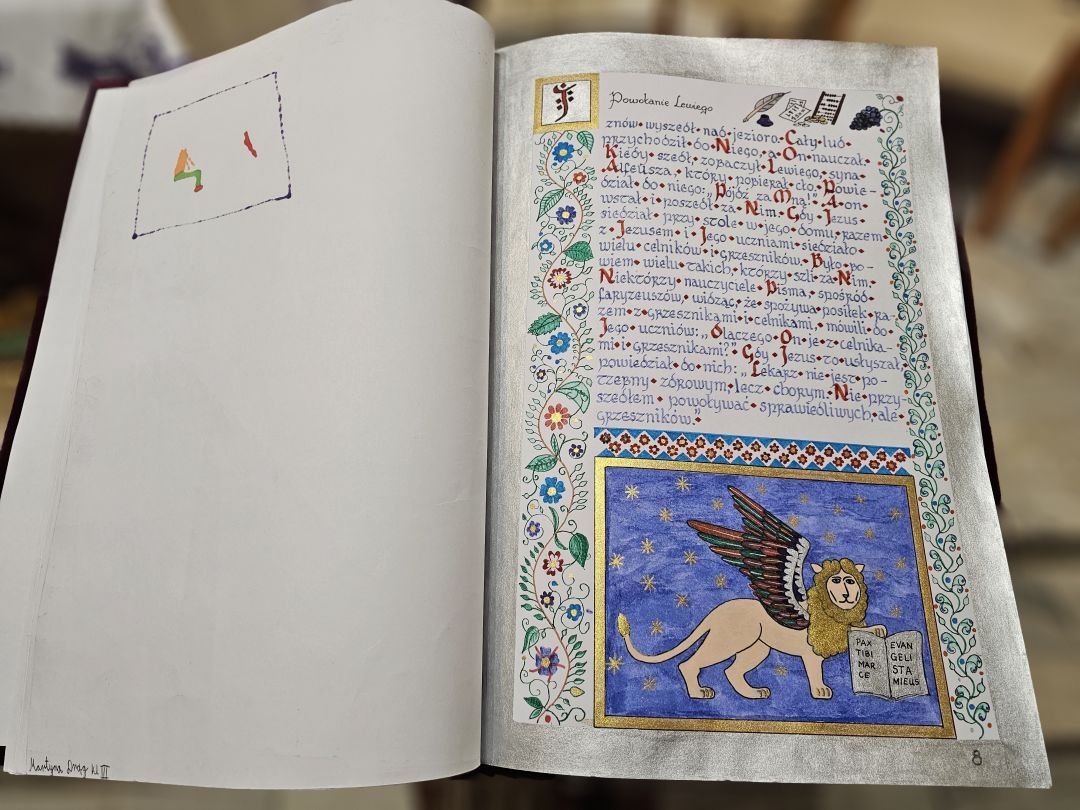 Martyna Drąg kl III
J
Powołanie Lewiego
znów wyszedł nad jezioro. Cały lud
przychodził do Niego, a On nauczał.
Kiedy szedł, zobaczył Lewiego, syna
Alfeusza, który pobierał cło. Powie-
dział do niego: „Pójdź za Mną!" A on
wstał i poszedł za Nim. Gdy Jezus
siedział przy stole w jego domu, razem
z Jezusem i Jego uczniami siedziało
wielu celników i grzeszników. Było po-
wiem wielu takich, którzy szli za Nim.
Niektórzy nauczyciele Pisma, spośród
faryzeuszów, widząc, że spożywa posiłek ra-
zem z grzesznikami i celnikami, mówili do
Jego uczniów: „Dlaczego On je z celnika-
mi i grzesznikami?" Gdy Jezus to usłyszał,
powiedział do nich: „Lekarz nie jest po-
trzebny zdrowym, lecz chorym. Nie przy-
szedłem powoływać sprawiedliwych, ale
grzeszników."
PAX
TIBI
MAR
CE
EVAN
GELI
STA
MIEUS
8